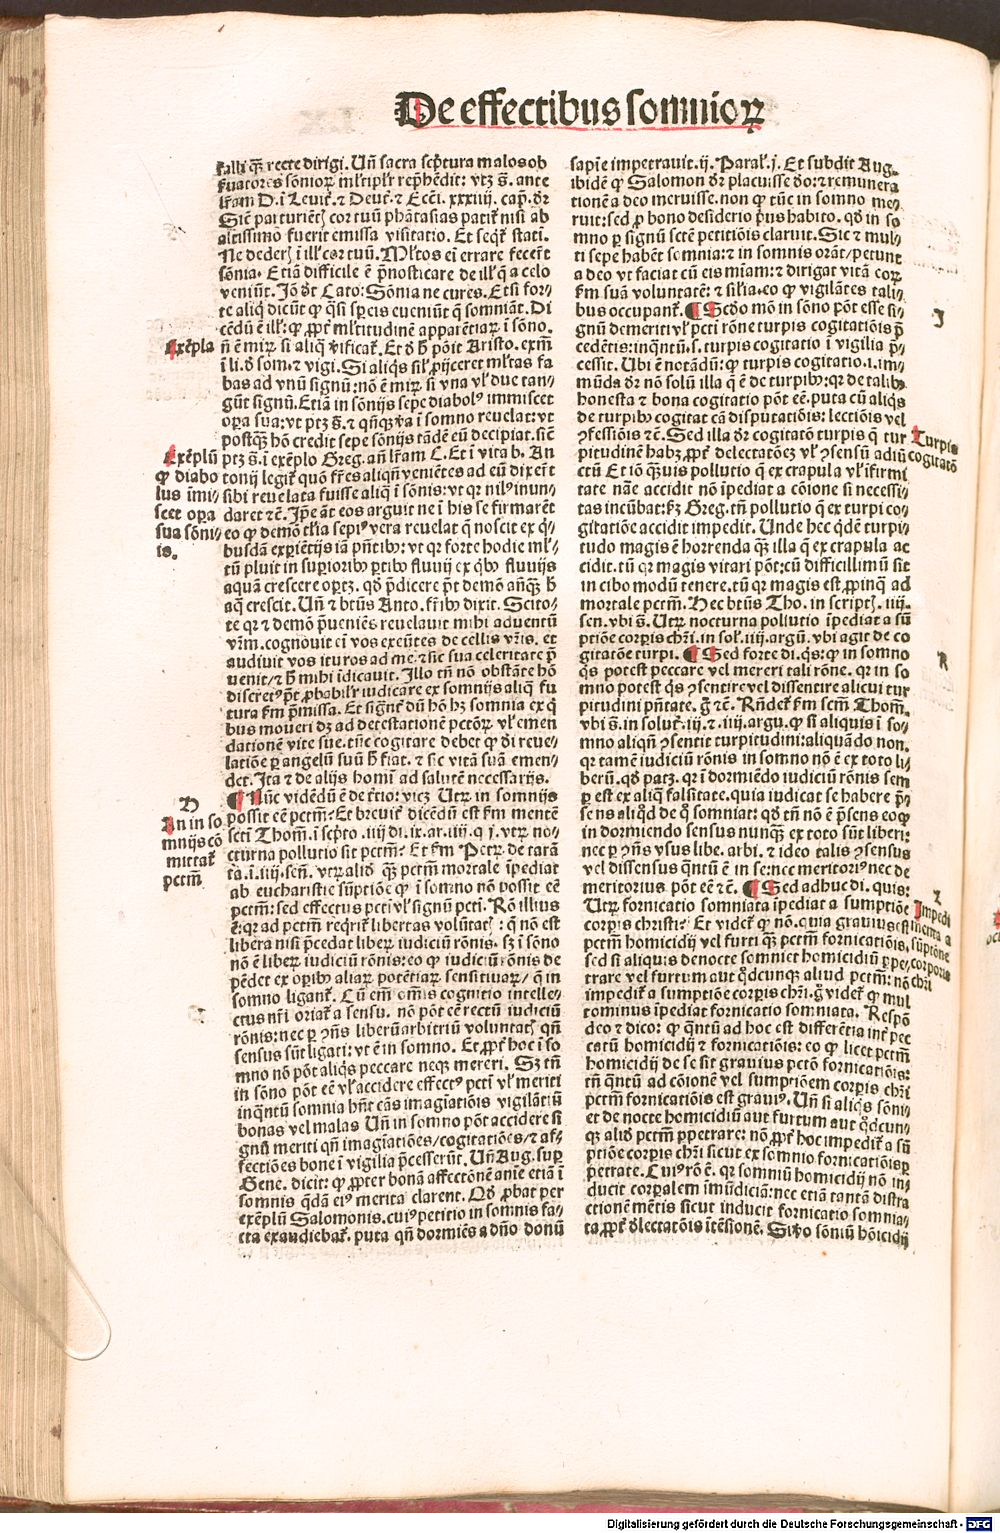 De effectibus somnioꝝ
falli qȝ recte dirigi. Uñ sacra scp̄tura malos ob
ẜuatores sōnioꝝ ml̄tipl̄r rep̄hēdit: vtȝ s̄. ante
lr̄am D. ī Leuit̄. ⁊ Deut̄. ⁊ Ecci. xxxiiij. cap̄. dr̄
Sic̄ parturiētꝭ cor tuū phātasias patit̄ nisi ab
altissimo fuerit emissa visitatio. Et seqt̄ stati.
Ne dederꝭ ī ill̄ cor tuū. Ml̄tos eī errare fecer̄t
sōnia. Etiā difficile ē p̄nosticare de ill̄ q̄ a celo
veniūt. Jō dt̄ Cato: Sōnia ne cures. Et si for⸗
te aliq̄ dicūt ꝙ q̄si sp̄eis eueniūt q̄ somniāt. Di
cēdū ē ill̄: ꝙ ꝓpt̄ ml̄titudinē apparētiaꝝ ī sōno.
Exēpla
ñ ē mirꝝ si aliq̄ v̄ificat̄. Et ð h̄ pōit Aristo. exm̄
ī li. ð som. ⁊ vigi. Si aliq̄s sil̄ ꝓijceret ml̄tas fa
bas ad vnū signū: nō ē mirꝝ si vna vl̄ due tan⸗
gūt signū. Etiā in sōnijs sepe diabolꝰ immiscet
oꝑa sua: vt ptȝ s̄. ⁊ qn̄qꝫ v̄a ī somno reuelat: vt
postqȝ hō credit sepe sōnijs tādē eū decipiat. sic̄
Exēplū
ꝙ diabo
lus īmi⸗
scet oꝑa
sua sōni⸗
is.
ptȝ s̄. ī exēplo Greg. añ lr̄am C. Et ī vita b. An
tonij legit̄ quō fr̄es aliqñ veniētes ad eū dixer̄t
sibi reuelata fuisse aliq̄ ī sōnis: vt qr nilꝰ inun⸗
daret ⁊c̄. Ip̄e āt eos arguit ne ī his se firmarēt
eo ꝙ demō tl̄ia sepiꝰ vera reuelat q̄ noscit ex q̄⸗
busdā exꝑiētijs iā pn̄tibꝫ: vt qr forte hodie ml̄⸗
tū pluit in suꝑioribꝫ ꝑtibꝫ fluuij ex qͥbꝫ fluuijs
aquā crescere oꝑtȝ. qð p̄dicere pt̄ demō anq̄ȝ h̄
aq̄ crescit. Uñ ⁊ btūs Anto. fr̄ibꝫ dixit. Scito⸗
te qr ⁊ demō p̄ueniēs reuelauit mihi aduentū
vr̄m. cognouit eī vos exeūtes de cellis vr̄is. et
audiuit vos ituros ad me ⁊ sic̄ sua celeritate p̄
uenit/⁊ h̄ mihi īdicauit. Illo tñ nō obstāte hō
discretꝰ pt̄ ꝓbabil̄r iudicare ex somnijs aliq̄ fu
tura ẜm p̄missa. Et signēt̄ dū hō hȝ somnia ex q̄
bus moueri dȝ ad detestationē petōꝝ vl̄ emen
dationē vite sue. tūc cogitare debet ꝙ ð̄i reue⸗
latiōe ꝑ angelū suū h̄ fiat. ⁊ sic vitā suā emen⸗
det. Ita ⁊ de alijs homī ad salutē necessarijs.
D
An in so
mnijs cō
mittat̄
pctm̄
¶ Nūc vidēdū ē de t̄tio: vicȝ Utrꝝ in somnijs
possit eē pctm̄? Et breuit̄ dicēdū est ẜm mentē
scti Thom̄. ī scp̄to. iiij di. ix. ar. iiij. q j. vtrꝝ no⸗
cturna pollutio sit pctm̄? Et ẜm Petꝝ de tarā
ta. ī. iiij. sen̄. vtrꝝ aliō qȝ pctm̄ mortale īpediat
ab eucharistie sūptiōe ꝙ ī somno nō possit eē
pctm̄: sed effectus pcti vl̄ signū pcti. Rō illius
ē: qr ad pctm̄ reqrit̄ libertas volūtatꝭ: q̄ nō est
libera nisi p̄cedat liberꝝ iudiciū rōnis. sȝ ī sōno
nō ē liberꝝ iudiciū rōnis: eo ꝙ iudiciū rōnis de
pēdet ex oꝑibꝫ aliaꝝ potētiaꝝ sensitiuaꝝ/ q̄ in
somno ligant̄. Cū em̄ om̄is cognitio intelle⸗
ctus nr̄i oriat̄ a sensu. nō pōt eē rectū iudiciū
rōnis: nec ꝑ ꝯn̄s liberū arbitriū voluntatꝭ qn̄
sensus sūt ligati: vt ē in somno. Et ꝓpt̄ hoc ī so
mno nō pōt aliq̄s peccare neqꝫ mereri. Sȝ tñ
in sōno pōt eē vl̄ accidere effectꝰ pcti vl̄ meriti
inq̄ntū somnia hn̄t cās imagiatiōis vigilātiū
bonas vel malas Uñ in somno pōt accidere si
gnū meriti qn̄ imagiatiōes/cogitatiōes/⁊ af⸗
fectiōes bone ī vigilia p̄cesserūt. Uñ Aug. suꝑ
Gene. dicit: ꝙ ꝓpter bonā affectōnē anie etiā ī
somnis q̄dā eiꝰ merita clarent. Qð ꝓbat per
exēplū Salomonis. cuiꝰ petitio in somnis fa⸗
cta exaudiebat̄. puta qn̄ dormiēs a dn̄o donū
sapīe impetrauit. ij. Paral̄. j. Et subdit Aug.
ibidē ꝙ Salomon dr̄ placuisse ðo: ⁊ remunera
tionē a deo meruisse. non ꝙ tūc in somno me⸗
ruit: sed ꝓ bono desiderio p̄us habito. qð in so
mno ꝑ signū scte petitiōis claruit. Sic ⁊ mul⸗
ti sepe habēt somnia: ⁊ in somnis orāt/ petunt
a deo vt faciat cū eis mīam: ⁊ dirigat vitā coꝝ
ẜm suā voluntatē: ⁊ sil̄ia. eo ꝙ vigilātes tali⸗
bus occupant̄. ¶ Scðo mō in sōno pōt esse si⸗
J
gnū demeriti vl̄ pcti rōne turpis cogitatiōis p̄
cedētis: inqntū. s. turpis cogitatio ī vigilia p̄⸗
cessit. Ubi ē notādū: ꝙ turpis cogitatio. i. im⸗
mūda dr̄ nō solū illa q̄ ē de turpibꝫ: qr de talibꝫ
honesta ⁊ bona cogitatio pōt eē. puta cū aliq̄s
de turpibꝫ cogitat cā disputatiōis: lectiōis vel
ꝯfessiōis ⁊c̄. Sed illa dr̄ cogitatō turpis q̄ tur
Turpis
cogitatō
pitudinē habȝ ꝓpt̄ delectatōeȝ vl̄ ꝯsensū adiū
ctū Et iō q̄uis pollutio q̄ ex crapula vl̄ ifirmi
tate nāe accidit nō īpediat a cōione si necessi⸗
tas incūbat: ẜȝ Greg. tñ pollutio q̄ ex turpi co⸗
gitatiōe accidit impedit. Unde hec qdē turpi⸗
tudo magis ē horrenda qȝ illa q̄ ex crapula ac
cidit. tū qr magis vitari pōt: cū difficillimū sit
in cibo modū tenere. tū qr magis est ꝓpinq̄ ad
mortale pctm̄. Hec btūs Tho. in scriptꝭ. iiij.
sen. vbi s̄. Utrꝝ nocturna pollutio īpediat a sū
ptiōe corpis chr̄i. in sol̄. iiij. argū. vbi agit de co
gitatōe turpi. ¶ Sed forte di. qs: ꝙ in somno
K
q̄s potest peccare vel mereri tali rōne. qr in so
mno potest q̄s ꝯsentire vel dissentire alicui tur
pitudini pn̄tate. g̊ ⁊c̄. Rn̄det̄ ẜm scm̄ Thom̄.
vbi s̄. in solut̄. iij. ⁊. iiij. argu. ꝙ si aliquis ī so⸗
mno aliqñ ꝯsentit turpitudini: aliquādo non.
qr tamē iudiciū rōnis in somno nō ē ex toto li⸗
berū. qð patȝ. qr ī dormiēdo iudiciū rōnis sem
ꝑ est ex aliq̄ falsitate. quia iudicat se habere p̄⸗
sēns aliqd de q̊ somniat: qð tñ nō ē p̄sens eo ꝙ
in dormiendo sensus nunqȝ ex toto sūt liberi:
nec ꝑ ꝯn̄s vsus libe. arbi. ⁊ ideo talis ꝯsensus
vel dissensus q̄ntū ē in se: nec meritoriꝰ nec de
meritorius pōt eē ⁊c̄. ¶ Sed adhuc di. quis:
L
Impedi
menta a
sūptōne
corporis
chr̄i
Utrꝝ fornicatio somniata īpediat a sumptiōe
corpis christi? Et videt̄ ꝙ nō. quia grauius est
pctm̄ homicidij vel furti qȝ pctm̄ fornicatiōis.
sed si aliquis de nocte somniet homicidiū ꝑpe⸗
trare vel furtum aut qdcunqꝫ aliud pctm̄: nō
impedit̄ a sumptiōe corpis chr̄i. g̊ videt̄ ꝙ mul
tominus īpediat fornicatio somniata. Respō
deo ⁊ dico: ꝙ q̄ntū ad hoc est differētia int̄ pec
catū homicidij ⁊ fornicatiōis: eo ꝙ licet pctm̄
homicidij de se sit grauius pctō fornicatiōis:
tñ q̄ntū ad cōionē vel sumptiōem corpis chr̄i
pctm̄ fornicatiōis est grauiꝰ. Uñ si aliq̄s sōni⸗
et de nocte homicidiū aut furtum aut qdcun⸗
qꝫ aliō pctm̄ ꝑpetrare: nō ꝓpt̄ hoc impedit̄ a sū
ptiōe corpis chr̄i sicut ex somnio fornicatiōis ꝑ
petrate. Cuiꝰ rō ē. qr somniū homicidij nō in⸗
ducit corꝑalem īmūdiciā: nec etiā tantā distra
ctionē mētis sicut inducit fornicatio somnia⸗
ta ꝓpt̄ ðlectatōis itēsionē. Si v̊o sōniū hōicidij
Digitalisierung gefördert durch die Deutsche Forschungsgemeinschaft - DFG